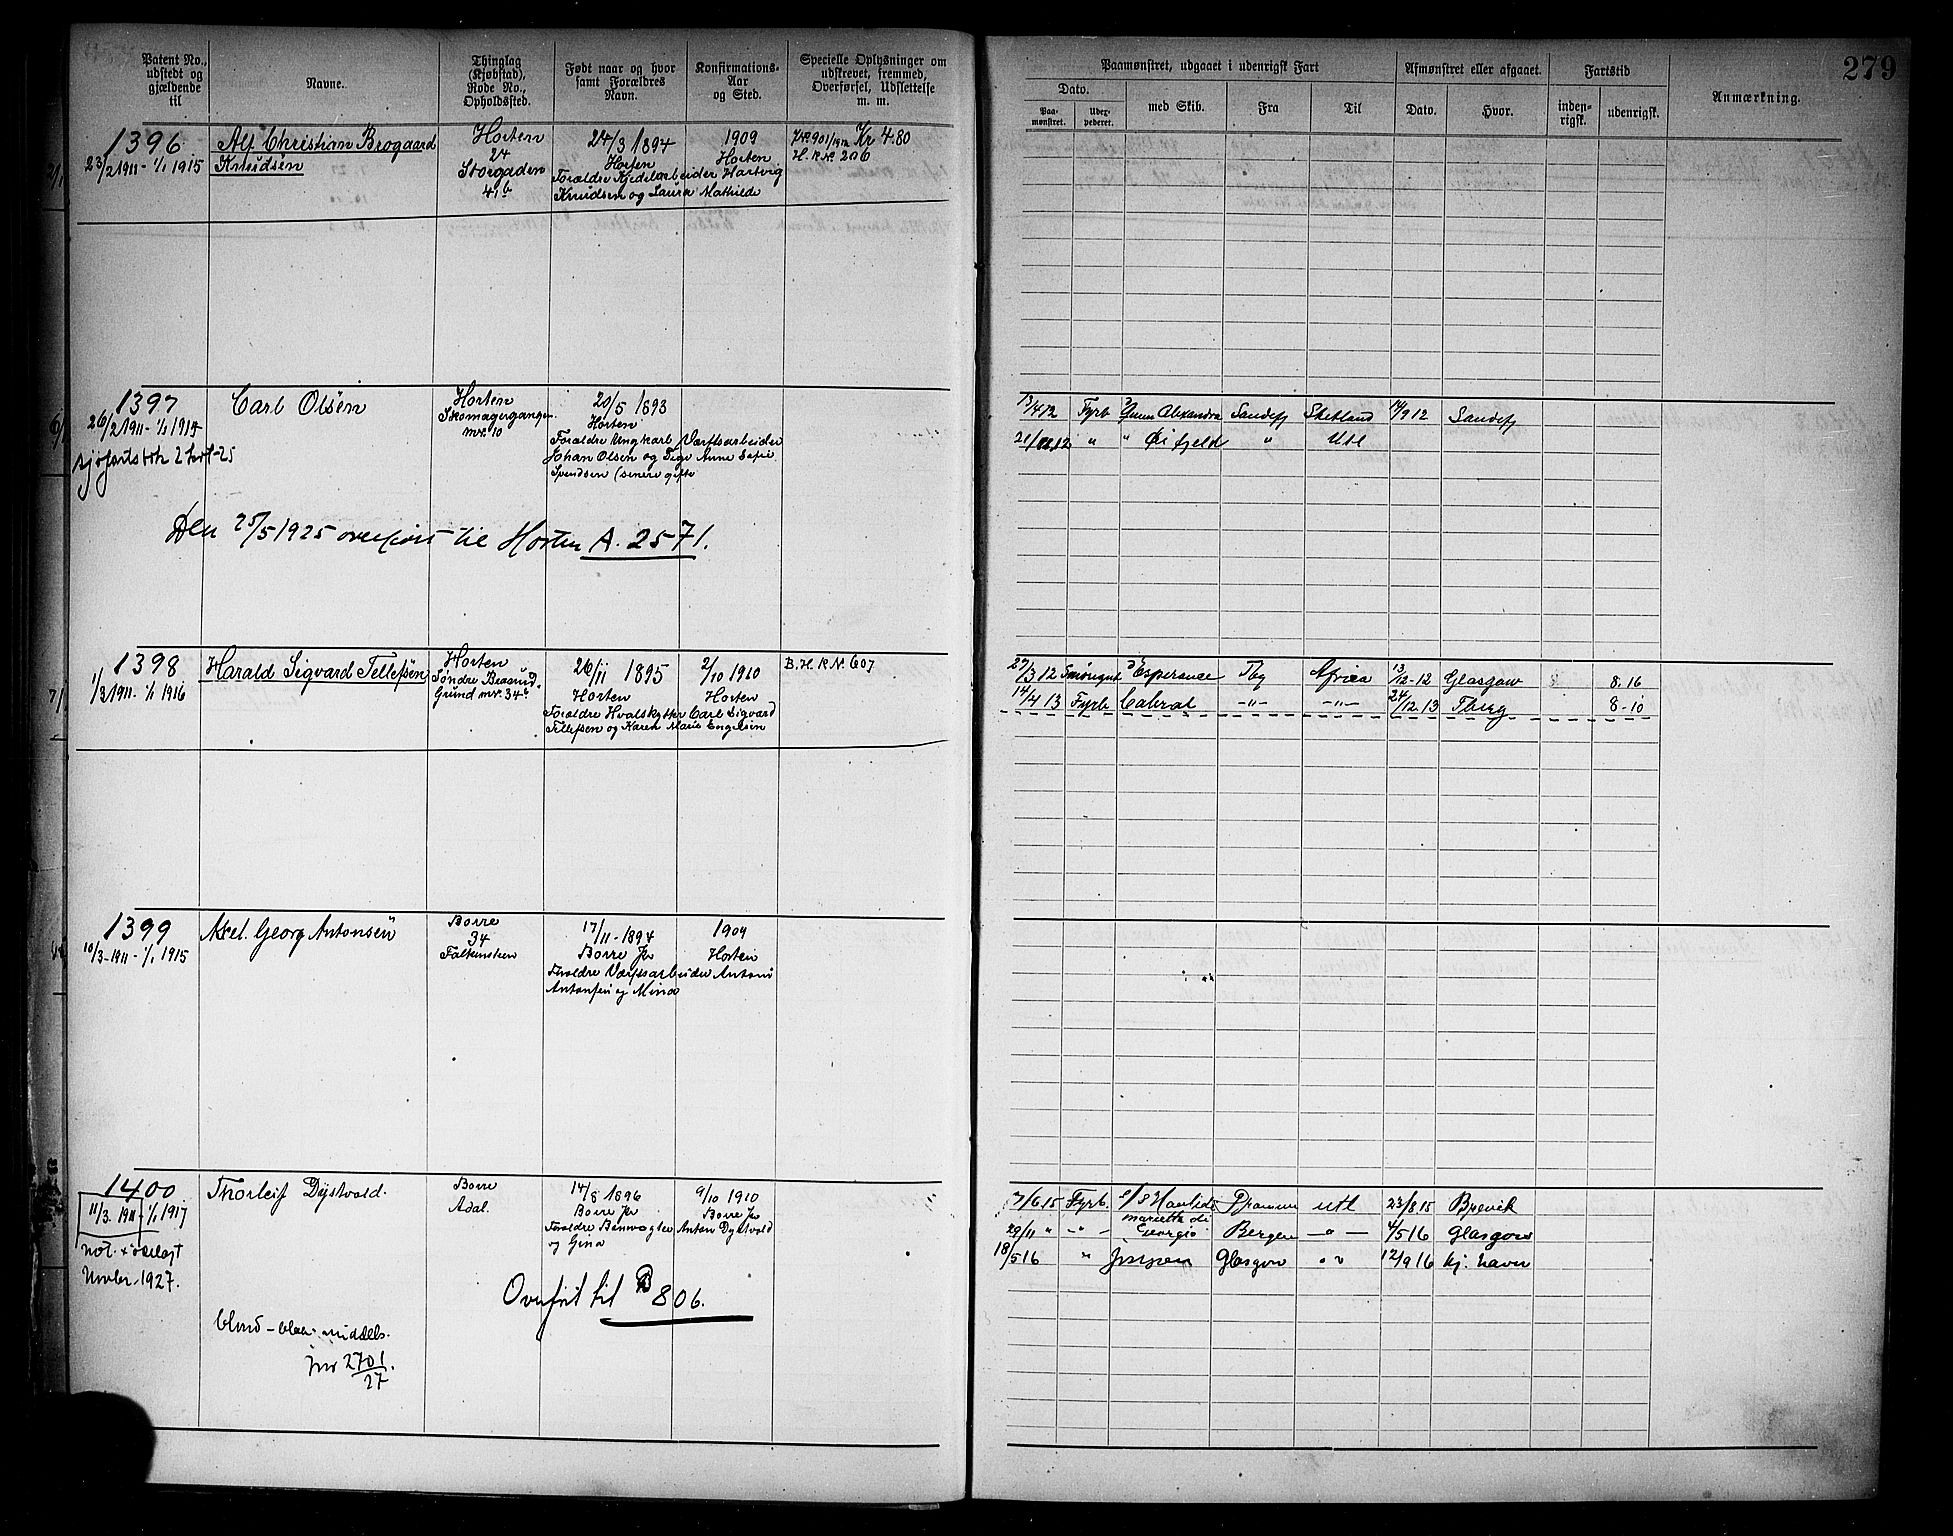 279
Patent No., udstedt og gjældende til
Navne.
Thinglag (Kjøbstad), Rode No., Opholdssted.
Født naar og hvor samt Forældres Navn.
Konfirmations-Aar og Sted.
Specielle Oplysninger om udskrevet, fremmed, Overførsel, Udslettelse m. m.
Paamønstret, udgaaet i udenrigsk Fart
Afmønstret eller afgaaet.
Fartstid
Anmærkning.
Dato.
Paa-mønstret.
Uder-pederet.
med Skib.
Fra
Til
Dato.
Hvor.
inden-rigsk.
udenrigsk.
1396
23/2 1911 - 1/1 1915
Alf Christian Brogaard
Knudsen
Horten
24
Storgaden
41b
24/3 1894
Horten
Forældre Kjedelarbeider Hartvig
Knudsen og Laura Mathilde
1909
Horten
Kr 4.80
H. R. No. 206
1397
26/2 1911 - 1/1 1915
2571 - 25
Carl Olsen
Horten
Skomagergangen
nr. 10
20/5 1893
Horten
Forældre Ungkarl Værftsarbeider
Johan Olsen og Pige Anne Sofie
Svendsen (senere gifte
Den 25/5 1925 overført til Horten A. 2571.
12 Fyrb Alexandra Sandefj Shetland 14/9 12 Sandefj
12 " " " Utl
1398
1/3 1911 - 1/1 1916
Harald Sigvard Tellefsen
Horten
Søndre Braarud-
Grund nr. 34b
26/11 1895
Horten
Forældre Hvalskytter Carl Sigvard
Tellefsen og Karen Marie Engelsen
2/10 1910
Horten
B. H. R. N. 607
27/3 12 Esperance Tbg Africa 13/12-12 Glasgow 8.16
14/4 13 Fyrb Cabral -"- -"- 24/12 13 Tberg 8-10
1399
10/3-1911 - 1/1 1915
Axel. Georg Antonsen
Borre
34
Falkensten
17/11 - 1894
Borre Pr
Forældre Værftsarbeider Antoni
Antonsen og Mina
1909
Horten
1400
11/3 1911 - 1/1 1917
1927.
Thorleif Dystvold.
Borre
Adal.
14/8 1896
Borre Pr
Forældre Banevogter Anton Dystvold
og Gina
9/10 1910
Borre Pr
Overført til B 806.
middels.
jnr 2701/27
7/6 15 Fyrb. s/s Drammen utl 23/8 15 Brevik
29/11 " -"- Marietta di Giorgio Bergen -"- 4/5 16 Glasgow
18/5 16 " Glasgow " 12/9 16 Kj. havn